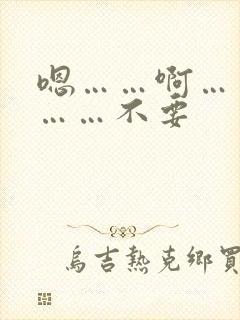 嗯……啊…
……不要
烏吉熱克鄉買